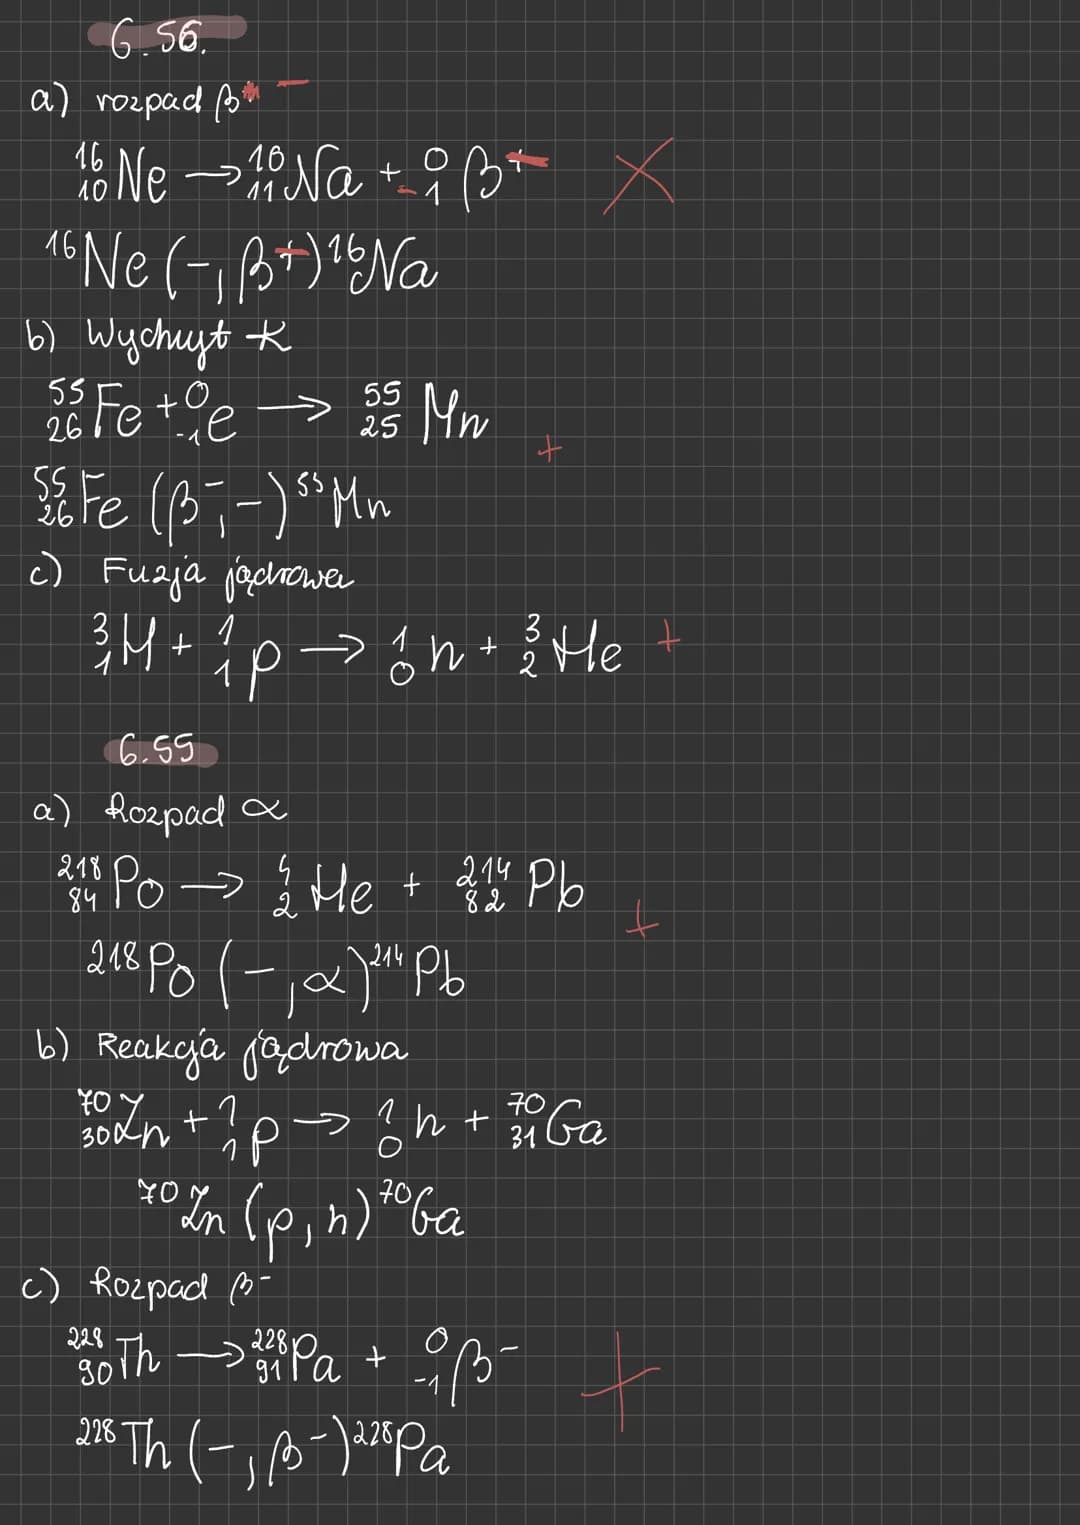 6.56.
a) rozpad β⁺ −
¹⁶₁₀Ne → ¹⁶₁₁Na + ₋⁰₁β⁺ ×
¹⁶Ne (−, β⁺) ¹⁶Na
b) Wychwyt K
⁵⁵₂₆Fe + ⁰₋₁e → ⁵⁵₂₅Mn +
⁵⁵₂₆Fe (β⁻, −) ⁵⁵Mn
c) Fuzja jądrowa
³₁H + ¹₁p → ¹₀n + ³₂He +
6.55
a) Rozpad α
²¹⁸₈₄Po → ⁴₂He + ²¹⁴₈₂Pb +
²¹⁸Po (−, α) ²¹⁴Pb
b) Reakcja jądrowa
⁷⁰₃₀Zn + ¹₁p → ¹₀n + ⁷⁰₃₁Ga
⁷⁰Zn (p, n) ⁷⁰Ga
c) Rozpad β⁻
²²⁸₉₀Th → ²²⁸₉₁Pa + ⁰₋₁β⁻ +
²²⁸Th (−, β⁻) ²²⁸Pa